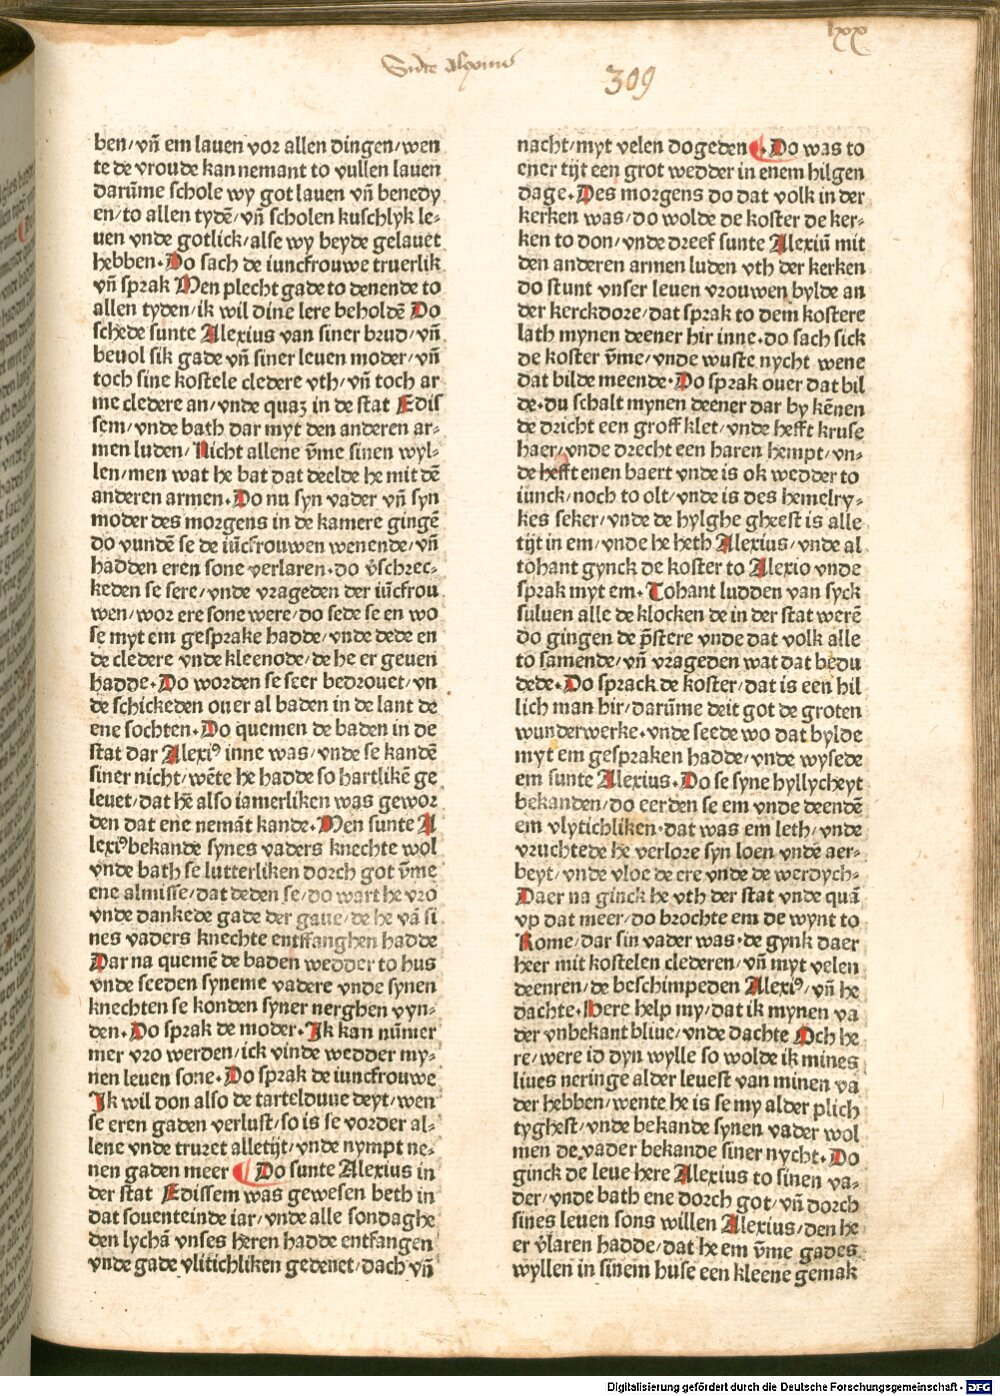 lxx
Sūte alexius
309
ben/vn̄ em lauen vor allen dingen/wen
te de vroude kan nemant to vullen lauen
darūme schole wy got lauen vn̄ benedy
en/to allen tydē/vn̄ scholen kuschlyk le⸗
uen vnde gotlick/alse wy beyde gelauet
hebben·Do sach de iuncfrouwe truerlik
vn̄ sprak Men plecht gade to denende to
allen tyden/ik wil dine lere beholdē Do
schede sunte Alexius van siner brud/vn̄
beuol sik gade vn̄ siner leuen moder/vn̄
toch sine kostele cledere vth/vn̄ toch ar
me cledere an/vnde quaʒ in de stat Edis
sem/vnde bath dar myt den anderen ar⸗
men luden/Nicht allene v̄me sinen wyl⸗
len/men wat he bat dat deelde he mit dē
anderen armen·Do nu syn vader vn̄ syn
moder des morgens in de kamere gingē
do vundē se de iūcfrouwen wenende/vn̄
hadden eren sone verlaren·do v̄schrec⸗
keden se sere/vnde vrageden der iūcfrou
wen/wor ere sone were/do sede se en wo
se myt em gesprake hadde/vnde dede en
de cledere vnde kleenode/de he er geuen
hadde·Do worden se seer bedrouet/vn
de schickeden ouer al baden in de lant de
ene sochten·Do quemen de baden in de
stat dar Alexiꝰ inne was/vnde se kandē
siner nicht/wēte he hadde so hartlikē ge
leuet/dat hē also iamerliken was gewor
den dat ene nemāt kande·Men sunte A
lexiꝰ bekande synes vaders knechte wol
vnde bath se lutterliken dorch got v̄me
ene almisse/dat deden se/do wart he vro
vnde dankede gade der gaue/de he vā si
nes vaders knechte entffanghen hadde
Dar na quemē de baden wedder to hus
vnde seeden syneme vadere vnde synen
knechten se konden syner nerghen vyn⸗
den·Do sprak de moder·Jk kan nūmer
mer vro werden/ick vinde wedder my⸗
nen leuen sone·Do sprak de iuncfrouwe
Jk wil don also de tartelduue deyt/wen
se eren gaden verlust/so is se vorder al⸗
lene vnde truret alletijt/vnde nympt ne⸗
nen gaden meer Do sunte Alexius in
der stat Edissem was gewesen beth in
dat souenteinde iar/vnde alle sondaghe
den lychā vnses heren hadde entfangen
vnde gade vlitichliken gedenet/dach vn̄
nacht/myt velen dogeden·Do was to
ener tijt een grot wedder in enem hilgen
dage·Des morgens do dat volk in der
kerken was/do wolde de koster de ker⸗
ken to don/vnde dreef sunte Alexiū mit
den anderen armen luden vth der kerken
do stunt vnser leuen vrouwen bylde an
der kerckdore/dat sprak to dem kostere
lath mynen deener hir inne·do sach sick
de koster v̄me/vnde wuste nycht wene
dat bilde meende·Do sprak ouer dat bil
de·du schalt mynen deener dar by kēnen
de dricht een groff klet/vnde hefft kruse
haer/vnde drecht een haren hempt/vn⸗
de hefft enen baert vnde is ok wedder to
iunck/noch to olt/vnde is des hemelry⸗
kes seker/vnde de hylghe gheest is alle
tijt in em/vnde he heth Alexius/vnde al
tohant gynck de koster to Alexio vnde
sprak myt em·Tohant ludden van syck
suluen alle de klocken de in der stat werē
do gingen de p̄stere vnde dat volk alle
to samende/vn̄ vrageden wat dat bedu
dede·Do sprack de koster/dat is een hil
lich man hir/darūme deit got de groten
wunderwerke·vnde seede wo dat bylde
myt em gespraken hadde/vnde wysede
em sunte Alexius·Do se syne hyllycheyt
bekanden/do eerden se em vnde deendē
em vlytichliken·dat was em leth/vnde
vruchtede he verlore syn loen vnde aer⸗
beyt/vnde vloe de ere vnde de werdych⸗
Daer na ginck he vth der stat vnde quā
vp dat meer/do brochte em de wynt to
Rome/dar sin vader was·de gynk daer
heer mit kostelen clederen/vn̄ myt velen
deenren/de beschimpeden Alexiꝰ/vn̄ he
dachte·Here help my/dat ik mynen va
der vnbekant bliue/vnde dachte Och he
re/were id dyn wylle so wolde ik mines
liues neringe alder leuest van minen va
der hebben/wente he is se my alder plich
tyghest/vnde bekande synen vader wol
men de vader bekande siner nycht·Do
ginck de leue here Alexius to sinen va⸗
der/vnde bath ene dorch got/vn̄ dorch
sines leuen sons willen Alexius/den he
er v̄laren hadde/dat he em v̄me gades
wyllen in sinem huse een kleene gemak
Digitalisierung gefördert durch die Deutsche Forschungsgemeinschaft - DFG